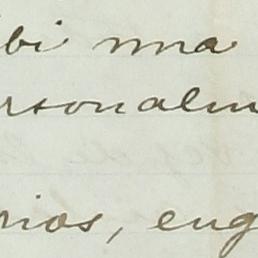 ibi una
ersonalm
rios, eng